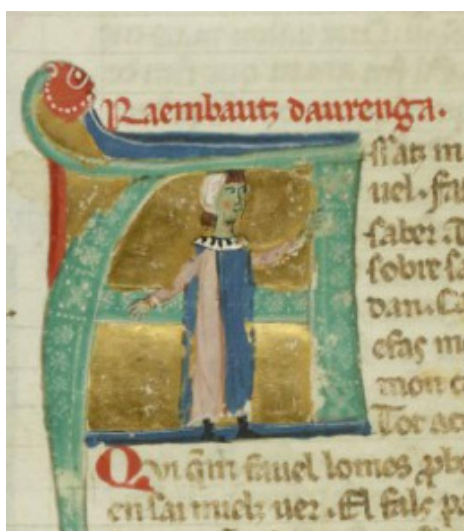 Raembautz daurenga.
A ssatz m
uel. fa
saber. T
sobre sa
dan. Ca
mon c
Tot ac
Qui qm fauel lomes
en sai mielz uer. El fals